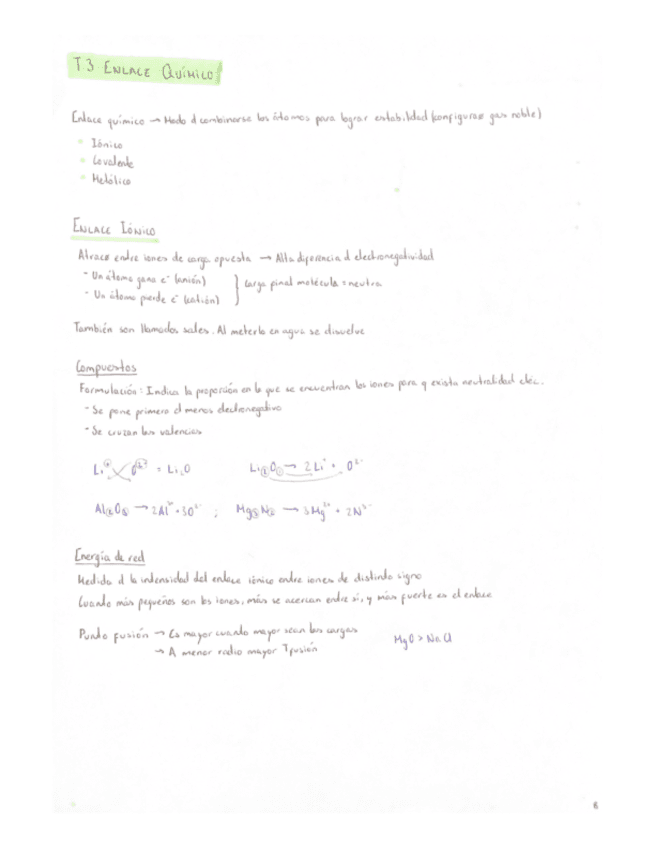 T3 ENLACE QUÍMICO
Enlace químico → Modo d combinarse los átomos para lograr estabilidad (configurar gas noble)
Iónico
Covalente
Metálico
ENLACE IÓNICO
Atracc entre iones de carga opuesta → Alta diferencia d electronegatividad
- Un átomo gana e⁻ (anión)
- Un átomo pierde e⁻ (catión)
} carga final molécula = neutra
También son llamados sales. Al meterlo en agua se disuelve
Compuestos
Formulación: Indica la proporción en la que se encuentran los iones para q exista neutralidad eléc.
- Se pone primero el menos electronegativo
- Se cruzan las valencias
Li⁺ O²⁻ = Li₂O
Li₂O → 2Li⁺ + O²⁻
Al₂O₃ → 2Al³⁺ + 3O²⁻ ; Mg₃N₂ → 3Mg²⁺ + 2N³⁻
Energía de red
Medida d la intensidad del enlace iónico entre iones de distinto signo
Cuando más pequeños son los iones, más se acercan entre sí, y más fuerte es el enlace
Punto fusión → Es mayor cuando mayor sean las cargas
→ A menor radio mayor Tfusión
MgO > NaCl
6